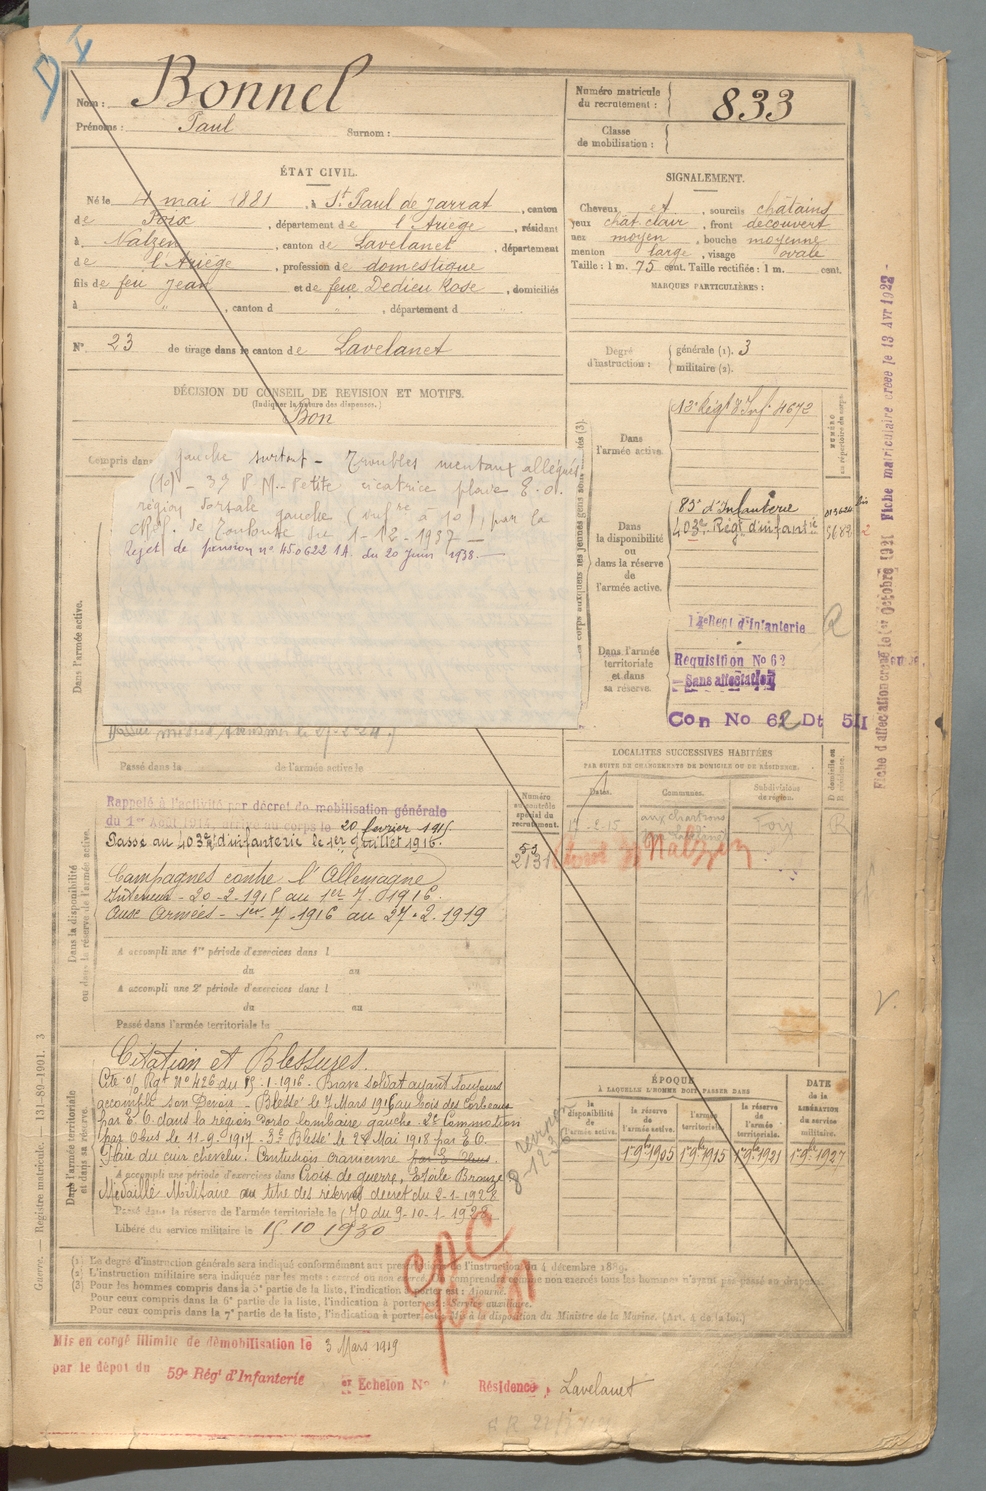 Nom : Bonnel
Prénoms : Paul Surnom :
Numéro matricule du recrutement : 833
Classe de mobilisation :
ÉTAT CIVIL.
Né le 4 mai 1881, à St Paul de Jarrat, canton
de Foix, département de l'Ariège, résidant
à Nalzen, canton de Lavelanet, département
de l'Ariège, profession de domestique
fils de feu Jean et de feue Dedieu Rose, domiciliés
à " , canton d " , département d "
N° 23 de tirage dans le canton de Lavelanet
DÉCISION DU CONSEIL DE REVISION ET MOTIFS.
(Indiquer la nature des dispenses.)
Bon
Compris dans
gauche surtout - Troubles mentaux allégués
(10) - 3° P.M. - Petite cicatrice plaie E.O.
région dorsale gauche (inf re à 10), par la
CRéf. de Toulouse du 1-12-1937 -
Rejet de pension n° 450622 1A. du 20 Juin 1938. -
Dans l'armée active.
Passé dans la de l'armée active le
SIGNALEMENT.
Cheveux et , sourcils châtains
yeux chât. clair , front découvert
nez moyen , bouche moyenne
menton large , visage ovale
Taille : 1 m. 75 cent. Taille rectifiée : 1 m. cent.
MARQUES PARTICULIÈRES :
Degré d'instruction : générale (1). 3
militaire (2).
Dans l'armée active.
12e Régt d'Inf. 4672
NUMÉRO au répertoire du corps.
Dans la disponibilité ou dans la réserve de l'armée active.
83e d'Infanterie
403e Régt d'infantie
Dans l'armée territoriale et dans sa réserve.
14e Regt d'Infanterie
Réquisition No 62
- Sans affectation
Con No 62 Dt 5II
LOCALITÉS SUCCESSIVES HABITÉES
PAR SUITE DE CHANGEMENTS DE DOMICILE OU DE RÉSIDENCE.
Dates. Communes. Subdivisions de région. D domicile ou R résidence.
Nalzen
Numéro au contrôle spécial du recrutement.
Dans la disponibilité ou dans la réserve de l'armée active.
Rappelé à l'activité par décret de mobilisation générale
du 1er Août 1914, arrivé au corps le 20 février 1915.
Passé au 403me d'infanterie le 1er Juillet 1916.
Campagnes contre l'Allemagne
Intérieur - 20-2-1915 au 1er-7-1916.
Aux Armées - 1er-7-1916 au 27-2-1919
A accompli une 1re période d'exercices dans l
du au
A accompli une 2e période d'exercices dans l
du au
Passé dans l'armée territoriale le
Dans l'armée territoriale et dans sa réserve.
Citation et Blessures
Cité o/ Rgt N° 426 du -1-1916 - Brave soldat ayant toujours
accompli son Devoir - Blessé le 7 Mars 1916 au Bois des Corbeaux
par E.O. dans la région dorso lombaire gauche - 2° Commotion
par Obus le 11-9-1917 - 3° Blessé le 28 Mai 1918 par E.O.
Plaie du cuir chevelu. Contusion cranienne
A accompli une période d'exercices dans Croix de guerre, Etoile Bronze
Médaille Militaire au titre des réserves décret du 2-1-1928
Passé dans la réserve de l'armée territoriale le JO du 9-10-1-1928
Libéré du service militaire le 15 10 1930
ÉPOQUE
À LAQUELLE L'HOMME DOIT PASSER DANS
la disponibilité de l'armée active. la réserve de l'armée active. l'armée territoriale. la réserve de l'armée territoriale.
DATE de la LIBÉRATION du service militaire.
1er 9bre 1905 1er 9bre 1915 1er 9bre 1921 1er 9bre 1927
(1) Le degré d'instruction générale sera indiqué conformément aux prescriptions de l'instruction du 4 décembre 1889.
(2) L'instruction militaire sera indiquée par les mots : exercé ou non exercé.
(3) Pour les hommes compris dans la 5e partie de la liste, l'indication à porter est : Ajourné.
Pour ceux compris dans la 6e partie de la liste, l'indication à porter est : Service auxiliaire.
Pour ceux compris dans la 7e partie de la liste, l'indication à porter est : Mis à la disposition du Ministre de la Marine. (Art. 4 de la loi.)
CAC
Mis en congé illimité de démobilisation le 3 Mars 1919
par le dépôt du 59e Régt d'Infanterie
Echelon N° Résidence, Lavelanet
Guerre. — Registre matricule. — 131-89-1901. 3
Fiche d'affectation créée le 1er Octobre 1921 Fiche matriculaire créée le 13 Avr 1922 -